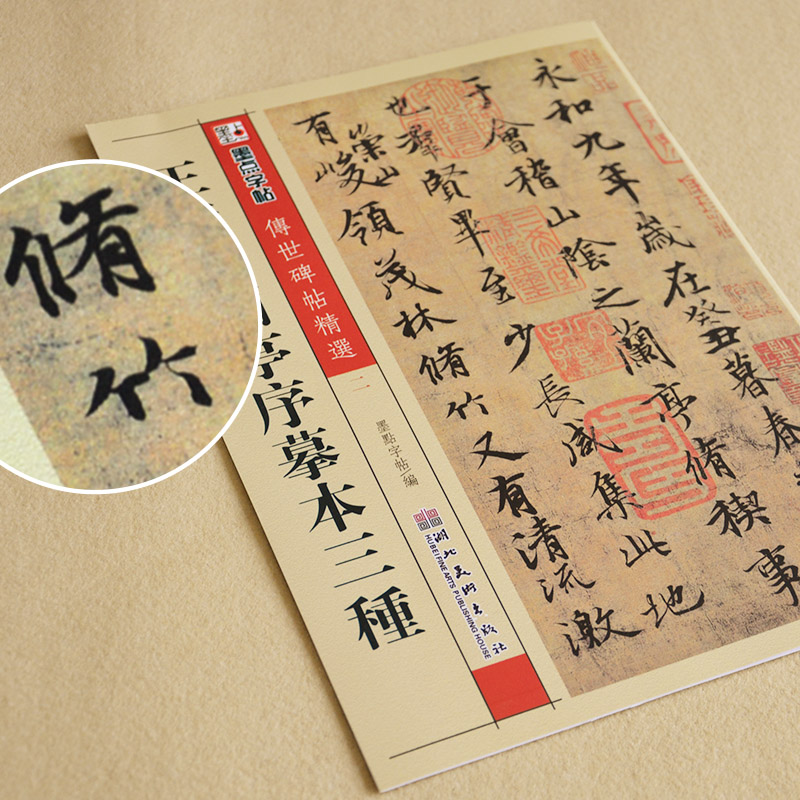 永和九年歲在癸丑暮春
于會稽山陰之蘭亭脩禊事
也羣賢畢至少長咸集此地
有崇山峻領茂林脩竹又有清流激
墨点字帖
傳世碑帖精選
二
墨點字帖編
湖北美術出版社
HUBEI FINE ARTS PUBLISHING HOUSE
亭序摹本三種
脩竹